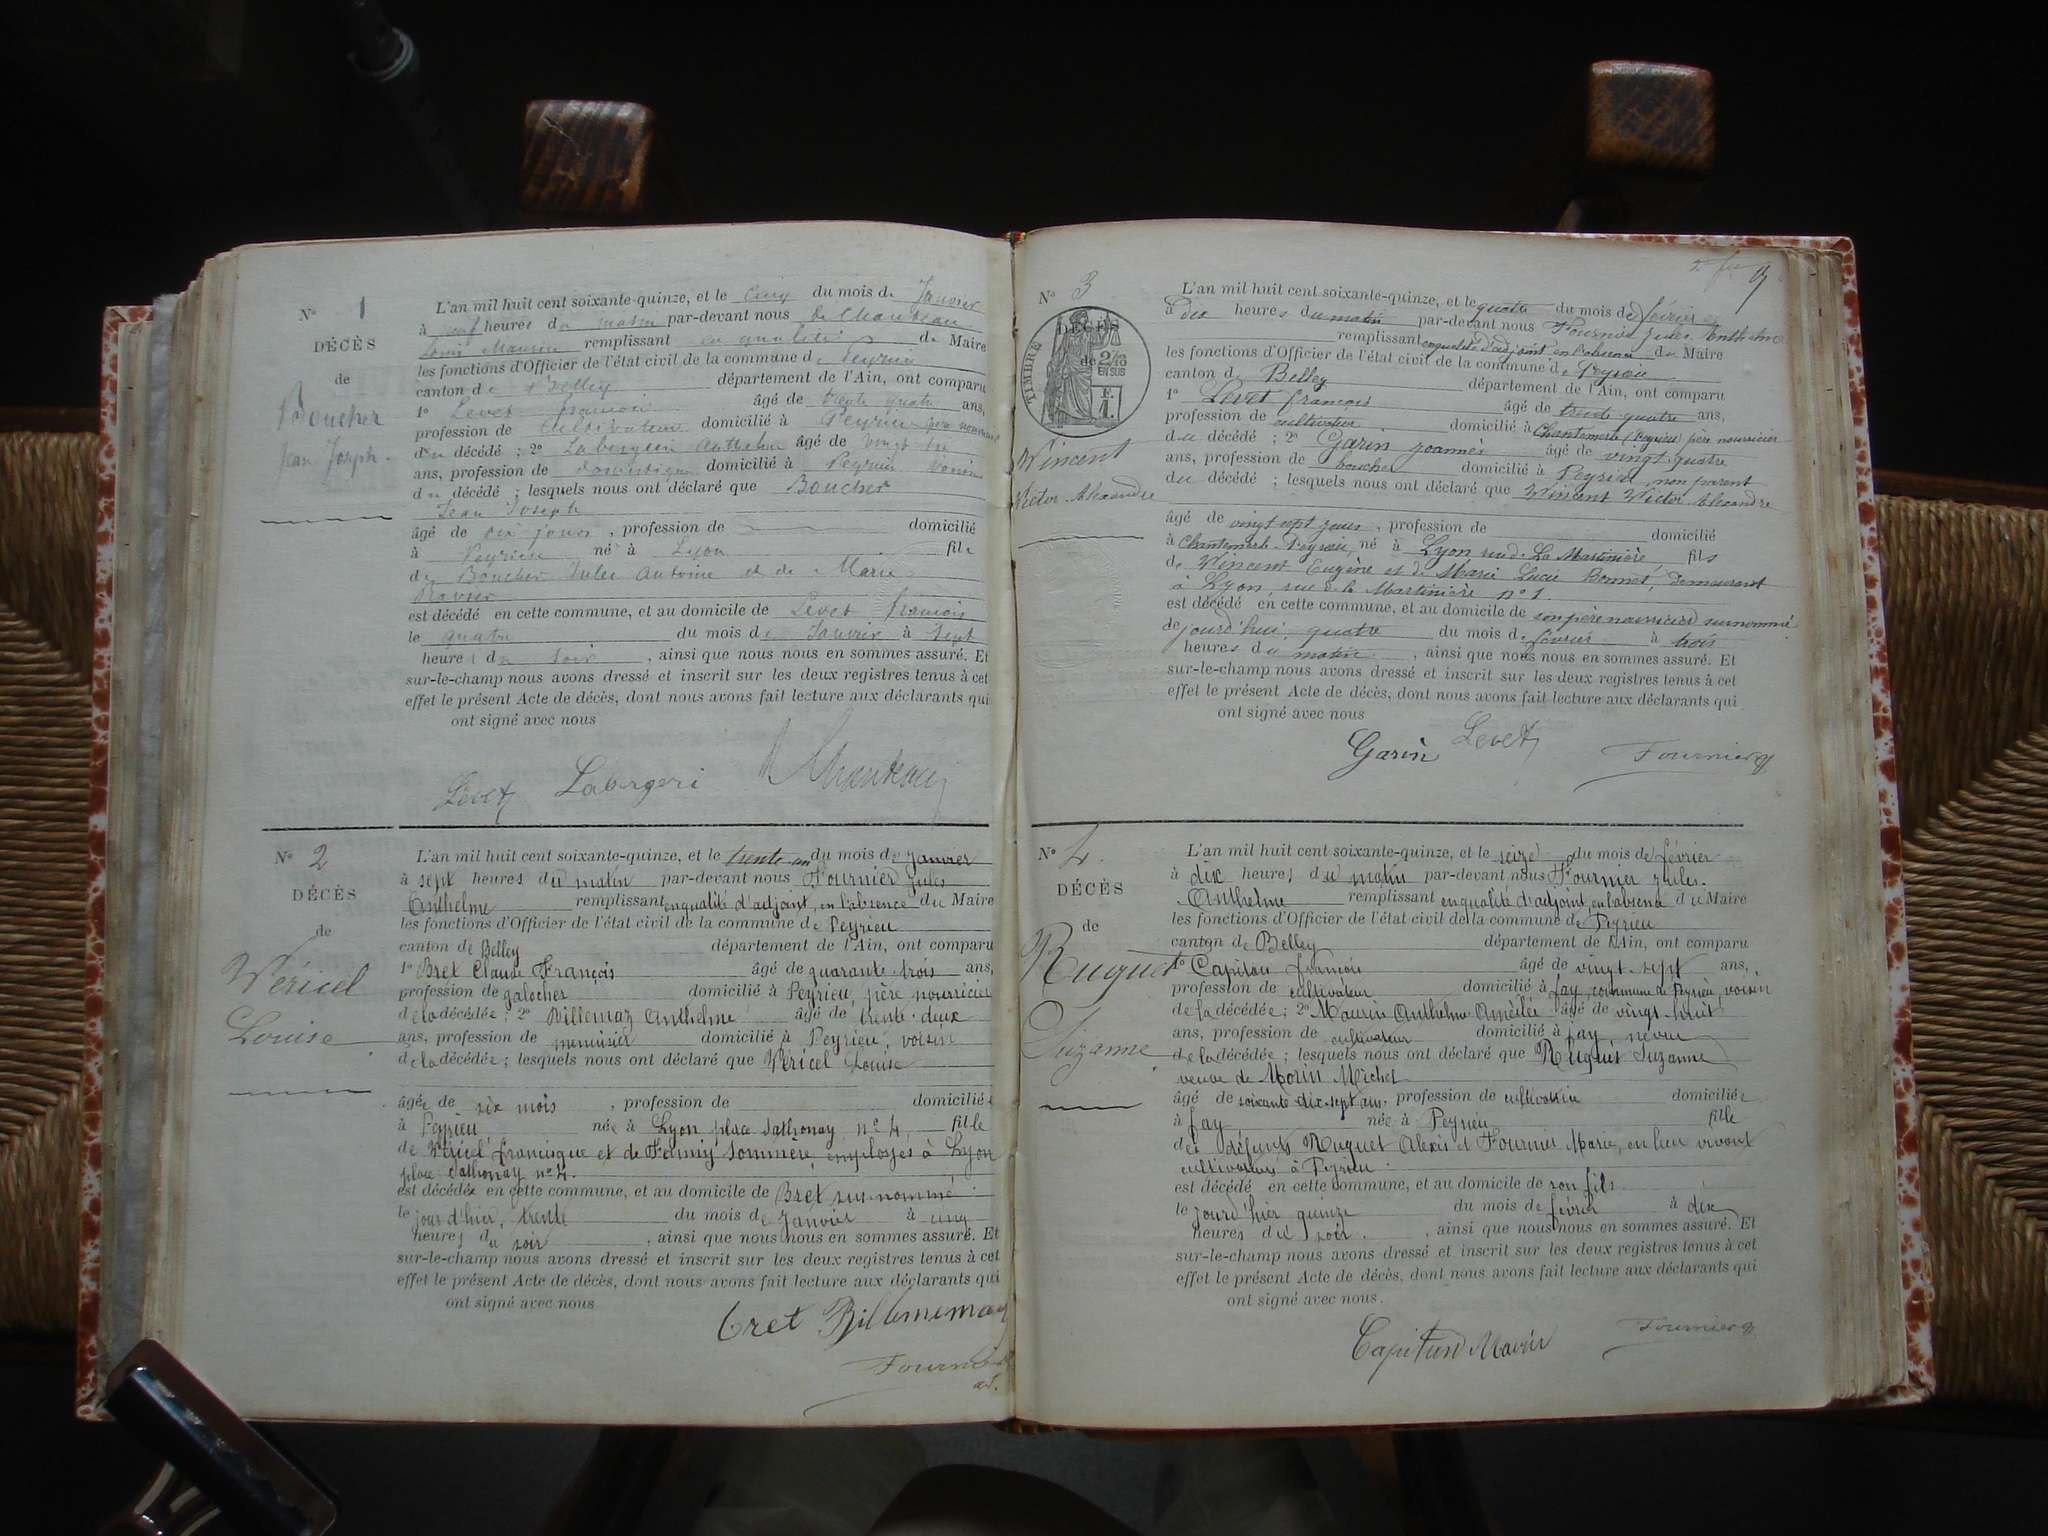 N° 1
DÉCÈS
de
Boucher
Jean Joseph
L'an mil huit cent soixante-quinze, et le Cinq du mois de Janvier
à neuf heures du matin par-devant nous de Chauveau
Louis Maurice remplissant en qualité de Maire
les fonctions d'Officier de l'état civil de la commune de Peyrieu
canton de Belley département de l'Ain, ont comparu
1° Levet françois âgé de trente quatre ans,
profession de cultivateur domicilié à Peyrieu père nourricier
du décédé ; 2° Anthelme âgé de vingt
ans, profession de domestique domicilié à Peyrieu voisin
du décédé ; lesquels nous ont déclaré que Boucher
Jean Joseph
âgé de dix jours, profession de domicilié
à Peyrieu né à Lyon fils
de Boucher Jules Antoine et de Marie
Ravier
est décédé en cette commune, et au domicile de Levet françois
le quatre du mois de Janvier à sept
heures du soir, ainsi que nous nous en sommes assuré. Et
sur-le-champ nous avons dressé et inscrit sur les deux registres tenus à cet
effet le présent Acte de décès, dont nous avons fait lecture aux déclarants qui
ont signé avec nous
Levet Labergeri
N° 2
DÉCÈS
de
Véricel
Louise
L'an mil huit cent soixante-quinze, et le trente-un du mois de Janvier
à sept heures du matin par-devant nous Fournier Jules
Anthelme remplissant en qualité d'adjoint, en l'absence du Maire
les fonctions d'Officier de l'état civil de la commune de Peyrieu
canton de Belley département de l'Ain, ont comparu
1° Bret Claude François âgé de quarante-trois ans,
profession de galocher domicilié à Peyrieu, père nourricier
de la décédée ; 2° Billemaz Anthelme âgé de trente-deux
ans, profession de menuisier domicilié à Peyrieu, voisin
de la décédée ; lesquels nous ont déclaré que Véricel Louise
âgée de six mois, profession de domiciliée
à Peyrieu née à Lyon place Sathonay n° 4, fille
de Véricel francisque et de Fanny Sommère, employés à Lyon
place Sathonay n° 4.
est décédée en cette commune, et au domicile de Bret sus-nommé
le jour d'hier, trente du mois de Janvier à cinq
heures du soir, ainsi que nous nous en sommes assuré. Et
sur-le-champ nous avons dressé et inscrit sur les deux registres tenus à cet
effet le présent Acte de décès, dont nous avons fait lecture aux déclarants qui
ont signé avec nous
Bret Billememaz
Fournier
ad.
N° 3
DÉCÈS
TIMBRE
de 2/10
EN SUS
F.
1.
Vincent
Victor Alexandre
L'an mil huit cent soixante-quinze, et le quatre du mois de février
à dix heures du matin par-devant nous Fournier Jules Anthelme
remplissant en qualité d'adjoint en l'absence du Maire
les fonctions d'Officier de l'état civil de la commune de Peyrieu
canton de Belley département de l'Ain, ont comparu
1° Levet françois âgé de trente-quatre ans,
profession de cultivateur domicilié à Chantemerle (Peyrieu) père nourricier
du décédé ; 2° Garin Joannès âgé de vingt-quatre
ans, profession de boucher domicilié à Peyrieu, non parent
du décédé ; lesquels nous ont déclaré que Vincent Victor Alexandre
âgé de vingt sept jours, profession de domicilié
à Chantemerle Peyrieu, né à Lyon rue de La Martinière, fils
de Vincent Eugène et de Marie Lucie Bonnet, demeurant
à Lyon, rue de la Martinière n° 1
est décédé en cette commune, et au domicile de son père nourricier surnommé
le jourd'hui, quatre du mois de février à trois
heures du matin, ainsi que nous nous en sommes assuré. Et
sur-le-champ nous avons dressé et inscrit sur les deux registres tenus à cet
effet le présent Acte de décès, dont nous avons fait lecture aux déclarants qui
ont signé avec nous
Garin Levet Fournier
N° 4
DÉCÈS
de
Ruguet
Suzanne
L'an mil huit cent soixante-quinze, et le seize du mois de février
à dix heures du matin par-devant nous Fournier Jules
Anthelme remplissant en qualité d'adjoint, en l'absence du Maire
les fonctions d'Officier de l'état civil de la commune de Peyrieu
canton de Belley département de l'Ain, ont comparu
1° Capitan françois âgé de vingt-sept ans,
profession de cultivateur domicilié à fay, commune de Peyrieu, voisin
de la décédée ; 2° Maurin Anthelme Amédée âgé de vingt-huit
ans, profession de cultivateur domicilié à fay, neveu
de la décédée ; lesquels nous ont déclaré que Ruguet Suzanne
veuve de Morin Michel
âgé de soixante dix-sept ans, profession de cultivatrice domiciliée
à fay née à Peyrieu fille
des défunts Ruguet Alexis et Fournier Marie, en leur vivant
cultivateurs à Peyrieu
est décédé en cette commune, et au domicile de son fils
le jourd'hier quinze du mois de février à dix
heures du soir, ainsi que nous nous en sommes assuré. Et
sur-le-champ nous avons dressé et inscrit sur les deux registres tenus à cet
effet le présent Acte de décès, dont nous avons fait lecture aux déclarants qui
ont signé avec nous.
Capitan Fournier